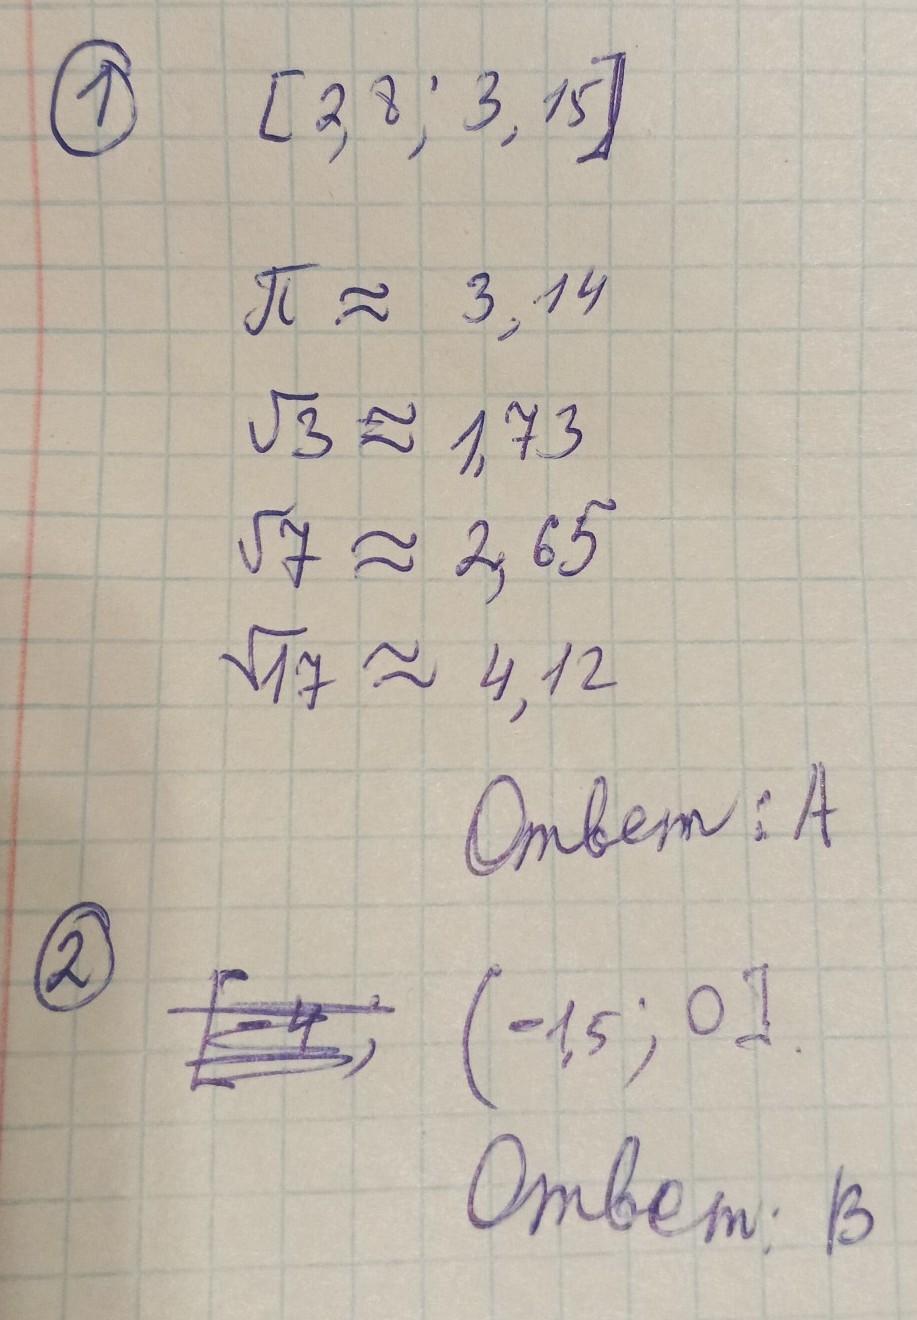 ① [2,8; 3,15]
π ≈ 3,14
√3 ≈ 1,73
√7 ≈ 2,65
√17 ≈ 4,12
Ответ: А
②
[-4; (-1,5; 0].
Ответ: В